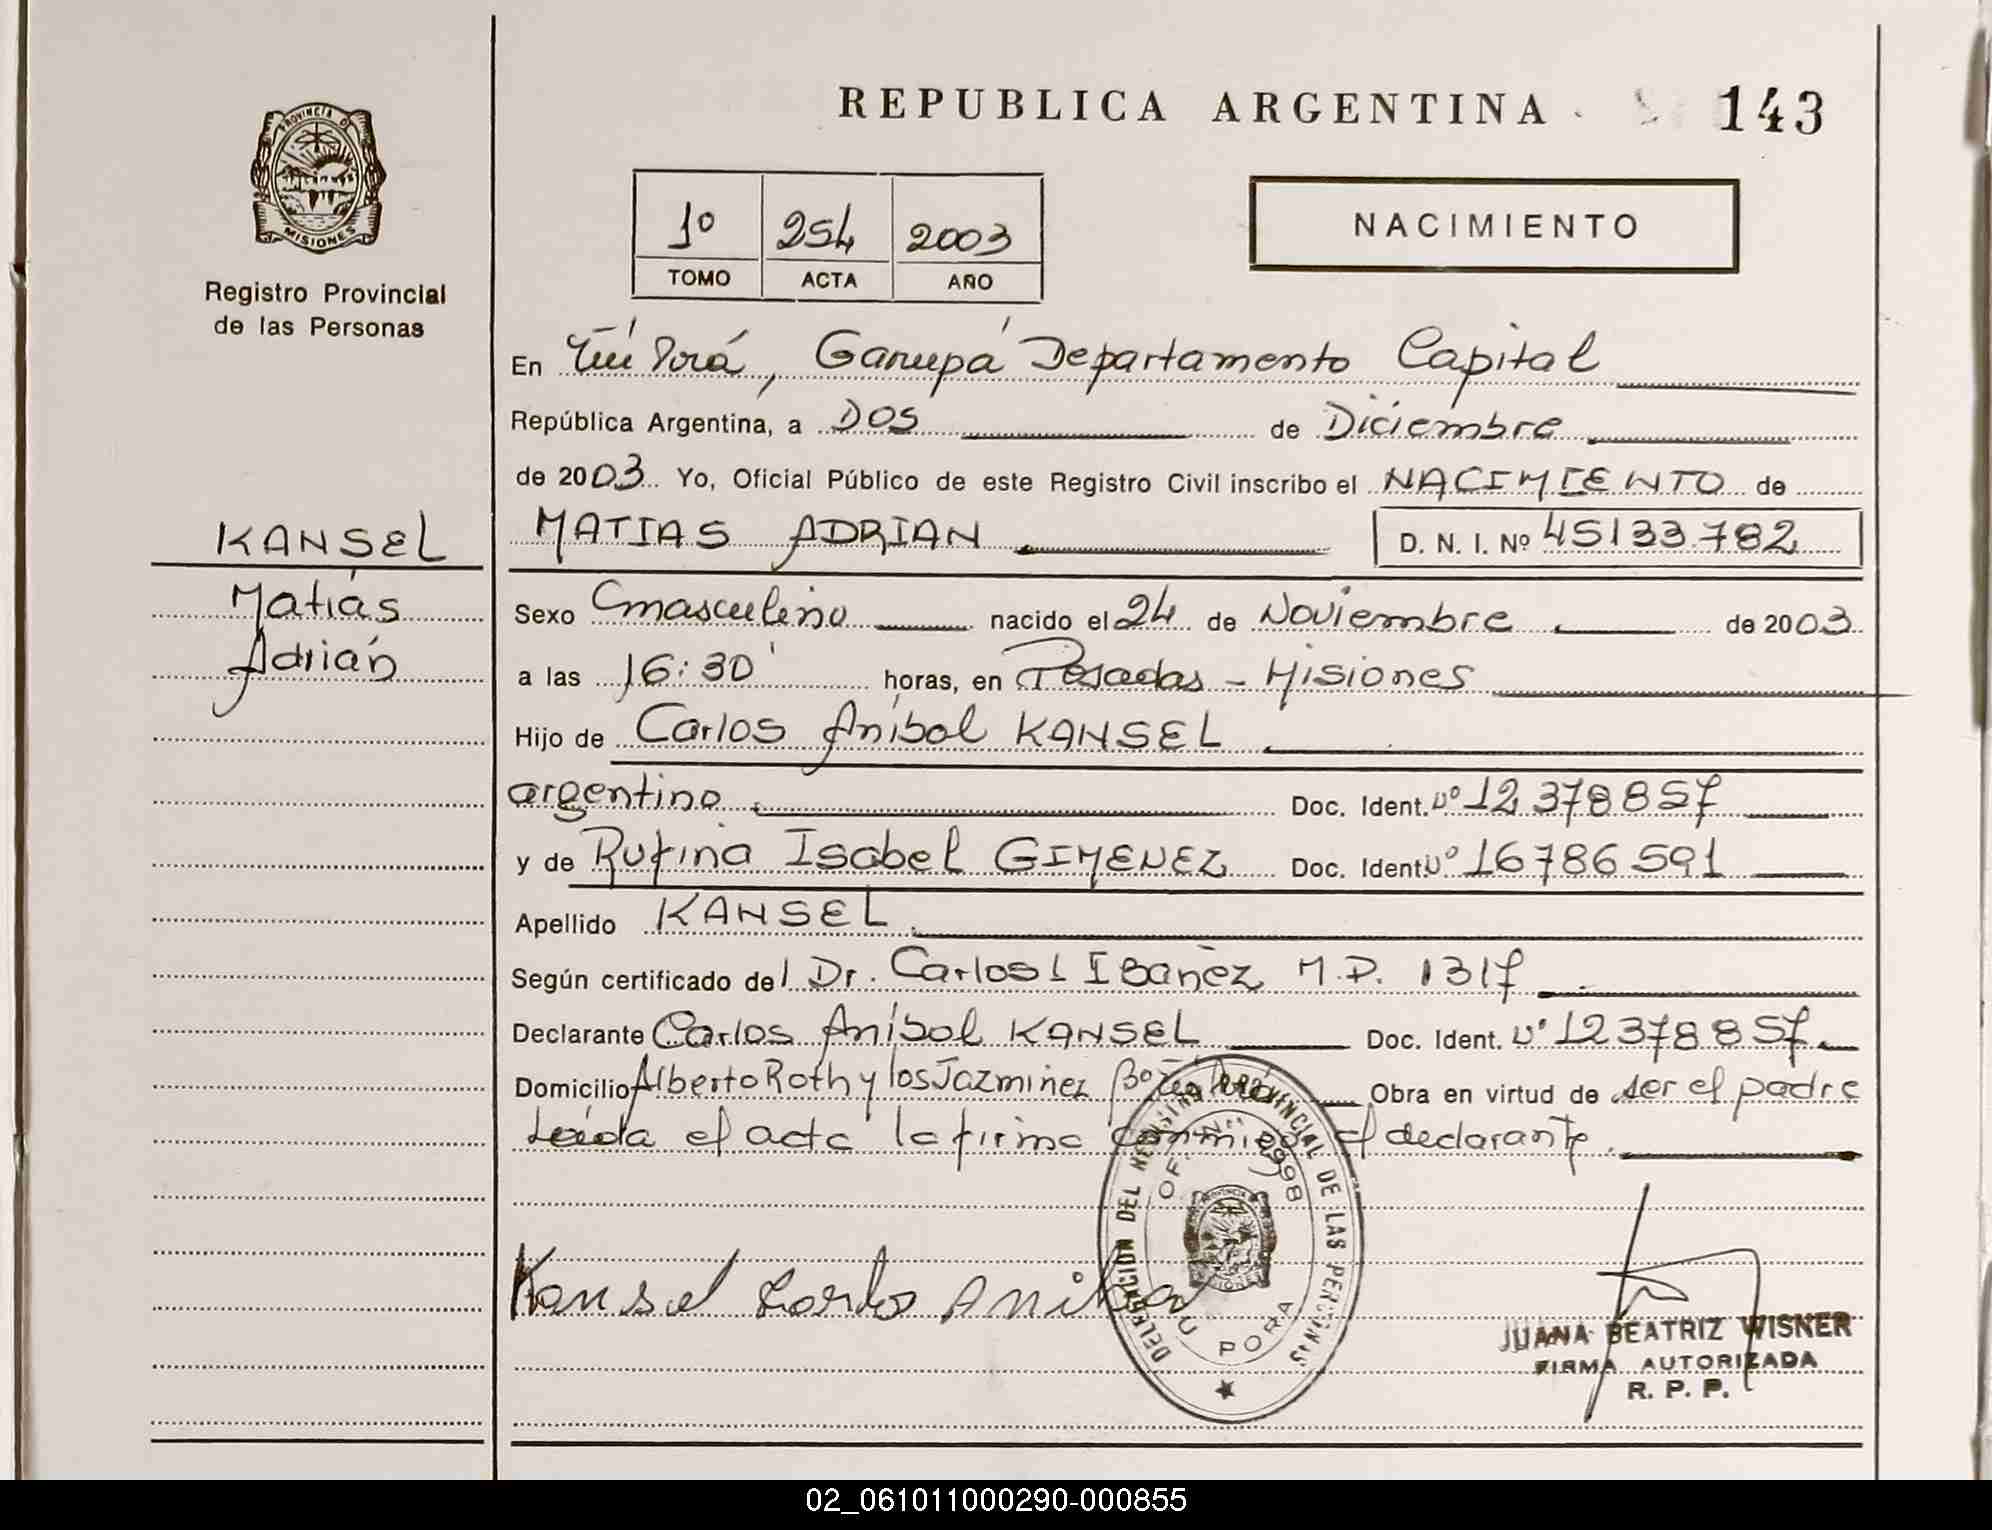 REPUBLICA ARGENTINA
143
PROVINCIA DE
MISIONES
Registro Provincial
de las Personas
1º 254 2003
TOMO ACTA AÑO
NACIMIENTO
En Ñú Porá, Garupá Departamento Capital
República Argentina, a Dos de Diciembre
de 2003 Yo, Oficial Público de este Registro Civil inscribo el NACIMIENTO de
KANSEL
Matías
Adrián
MATIAS ADRIAN D. N. I. Nº 45133.782
Sexo masculino nacido el 24 de Noviembre de 2003
a las 16:30' horas, en Posadas - Misiones
Hijo de Carlos Aníbal KANSEL
argentino Doc. Ident. Nº 12 378 857
y de Rufina Isabel GIMENEZ Doc. Ident Nº 16786 591
Apellido KANSEL
Según certificado del Dr. Carlos L Ibañez M.P. 1317
Declarante Carlos Aníbal KANSEL Doc. Ident. Nº 12378857
Domicilio Alberto Roth y los Jazmínez Bº Ñú Porá Obra en virtud de ser el padre
Leída el acta la firma conmigo el declarante.
Kansel Carlos Anibal
DELEGACION DEL REGISTRO PROVINCIAL DE LAS PERSONAS
OF. Nº 2998
ÑU PORA
JUANA BEATRIZ WISNER
FIRMA AUTORIZADA
R. P. P.
02_061011000290-000855